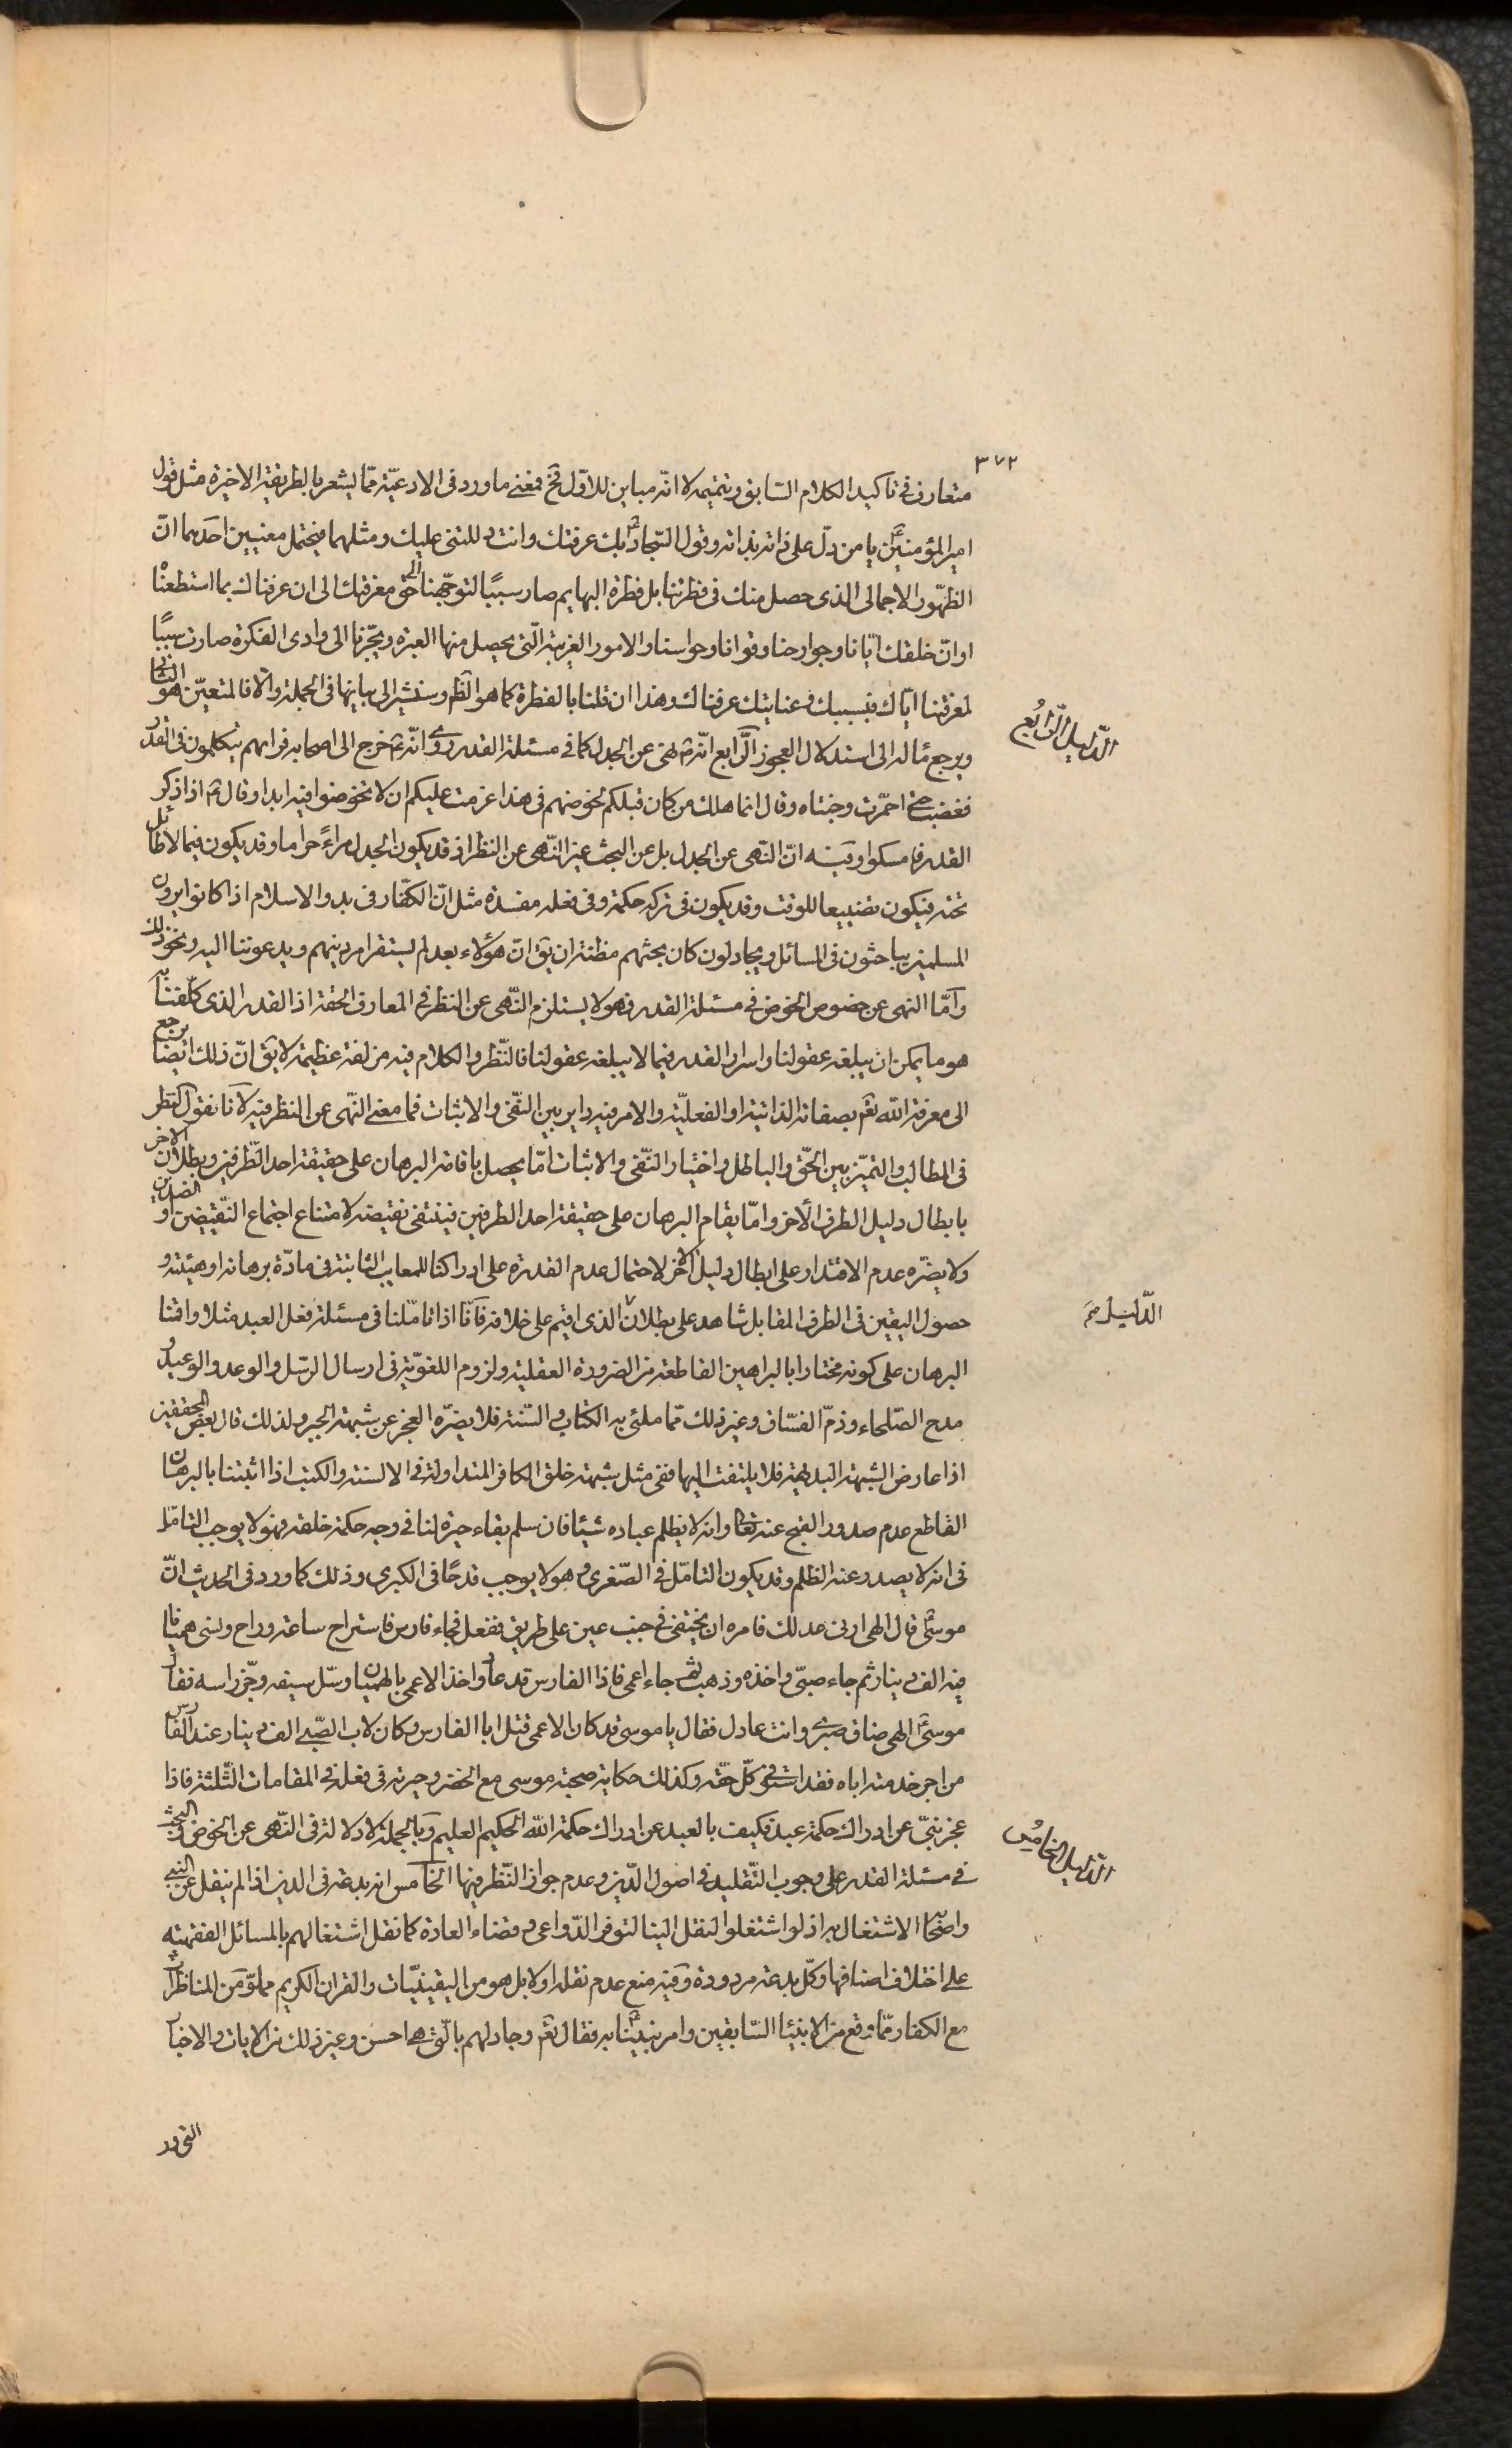 ٣٧٢
متعارف فى تاكيد الكلام السّابق وتتميمه لا انّه مباين للاوّل فح فمعنى ما ورد فى الادعيّة ممّا يشعر بالطريقة الاخيرة مثل قول
امير المؤمنين ع يا من دلّ على ذاته بذاته وقول السّجاد ع بك عرفتك وانت دللتنى عليك ومثلهما فيحتمل معنيين احدهما انّ
الظهور الاجمالى الذى حصل منك فى فطرتنا بل فطرة البهايم صار سببًا لتوجّهنا الى حق معرفتك الى ان عرفناك بما استطعنا
او انّ خلقك ايّانا وجوارحنا وقوانا وحواسنا والامور الغريبة الّتى يحصل منها العبرة ويجرّنا الى وادى الفكرة صارت سببًا
لمعرفتنا ايّاك فبسببك وعنايتك عرفناك وهذا ان قلنا بالفطرة كما هو الظ وسنشير الى بيانها فى الجملة والا فالمتعيّن هو الثانى
ويرجع مآله الى استدلال العجوز الرّابع انّه ص نهى عن الجدل كما فى مسئلة القدر روى انّه ص خرج الى اصحابه فراهم يتكلمون فى القدر
فغضب حتى احمرّت وجنتاه وقال انما هلك من كان قبلكم بخوضهم فى هذا عزمت عليكم ان لا تخوضوا فيه ابدا وقال ص اذا ذكر
القدر فامسكوا وفيه انّ النهى عن الجدل بل عن البحث غير النّهى عن النظر اذ قد يكون الجدل مراءً حراما وقد يكون فيما لا طائل
تحته فيكون تضييعا للوقت وقد يكون فى تركه حكمة وفى فعله مفسدة مثل انّ الكفّار فى بدو الاسلام اذا كانوا يرون
المسلمين يباحثون فى المسائل ويجادلون كان بحثهم مظنة ان يق انّ هؤلاء بعد لم يستقر امر دينهم ويدعوننا اليه ونحو ذلك
وامّا النهى عن خصوص الخوض فى مسئلة القدر فهو لا يستلزم النّهى عن النظر فى المعارف الحقة اذ القدر الذى كلّفنا به
هو ما يمكن ان يبلغه عقولنا واسرار القدر فيما لا يبلغه عقولنا فالنّظر والكلام فيه مزلفة عظيمة لا يق انّ ذلك ايضا يرجع
الى معرفة الله تعم بصفاته الذاتية او الفعليّة والامر فيه داير بين النّفى والاثبات فما معنى النّهى عن النظر فيه لانا نقول النظر
فى المطالب والتميّز بين الحقّ والباطل واختيار النّفى والاثبات امّا يحصل باقامة البرهان على حقيقة احد الطّرفين وبطلان الاخر
بابطال دليل الطرف الاخر وامّا يقام البرهان على حقيقة احد الطرفين فينتفى نقيضه لامتناع اجتماع النّقيضين او الضدين
ولا يضرّه عدم الاقتدار على ابطال دليل الاخر لاحتمال عدم القدرة على ادراكنا للمعايب الثابتة فى مادّة برهانه او هيئته و
حصول اليقين فى الطرف المقابل شاهد على بطلان الذى اقيم على خلافه فانّا اذا تامّلنا فى مسئلة فعل العبد مثلا واقمنا
البرهان على كونه مختارا بالبراهين القاطعة من الضرورة العقلية ولزوم اللغويّة فى ارسال الرّسل والوعد والوعيد و
مدح الصّلحاء وذمّ الفسّاق وغير ذلك ممّا ملئ به الكتاب والسّنة فلا يضرّه العجز عن شبهة الجبر ولذلك قال بعض المحققين
اذا عارض الشبهة البديهة فلا يلتفت اليها ففى مثل شبهة خلق الكافر المتداولة فى الالسنة والكتب اذا اثبتنا بالبرهان
القاطع عدم صدور القبح عنه تعالى وانه لا يظلم عباده شيئا فان سلم بقاء حيرة لنا فى وجه حكمة خلقه فهو لا يوجب التامّل
فى انه لا يصدر عنه الظلم وقد يكون التامّل فى الصّغرى وهو لا يوجب قدحًا فى الكبرى وذلك كما ورد فى الحديث انّ
موسى ع قال الهى ارنى عدلك فامره ان يختفى فى جنب عين على طريق ففعل فجاء فارس فاستراح ساعة وراح ونسى هميانا
فيه الف دينار ثم جاء صبىّ واخذه وذهب ثم جاء اعمى فاذا الفارس قد عاد واخذ الاعمى بالهميان وسّل سيفه وجزّ راسه فقال
موسى ع الهى ضاق صبرى وانت عادل فقال يا موسى قد كان الاعمى قتل ابا الفارس وكان لاب الصّبى الف دينار عند الفارس
من اجر خدمته اباه فقد استوفى كلّ حقّه وكذلك حكاية صحبة موسى مع الخضر وحيرته فى فعله فى المقامات الثّلثة فاذا
عجز نبىّ عن ادراك حكمة عبد فكيف بالعبد عن ادراك حكمة الله الحكيم العليم وبالجملة لا دلالة فى النّهى عن الخوض فى البحث
فى مسئلة القدر على وجوب التّقليد فى اصول الدّين وعدم جواز النّظر فيها الخامس انه بدعة فى الدين اذ لم ينقل عن النبى
واصحابه الاشتغال به اذ لو اشتغلوا لنقل الينا لتوفر الدّواعى وقضاء العادة كما نقل اشتغالهم بالمسائل الفقهيّة
على اختلاف اصنافها وكلّ بدعة مردودة وفيه منع عدم نقله اولا بل هو من اليقينيّات والقران الكريم مملوّ من المناظرات
مع الكفار ممّا وقع من الانبياء السّابقين وامر نبيّنا ص به فقال تعم وجادلهم بالّتى هى احسن وغير ذلك من الايات والاخبار
الدّليل الرّابع
الدّليل الخامس